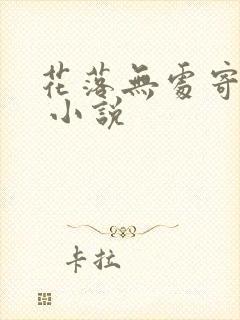 花落無處寄
小說
卡拉